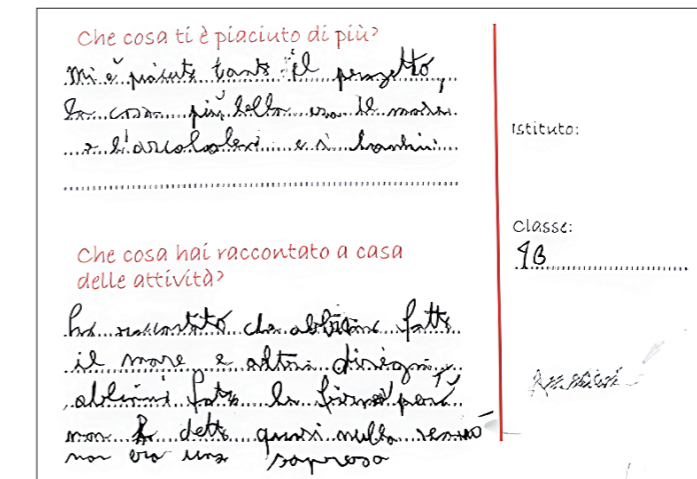 Che cosa ti è piaciuto di più?
Mi è piaciuto tanto il progetto,
la cosa più bella era il mare
e l'arcobaleno e i bambini
Che cosa hai raccontato a casa
delle attività?
ho raccontato che abbiamo fatto
il mare e altri disegni
abbiamo fato la firma però
non ho detto quasi nulla sennò
non era una sopresa
Istituto:
Classe:
1B